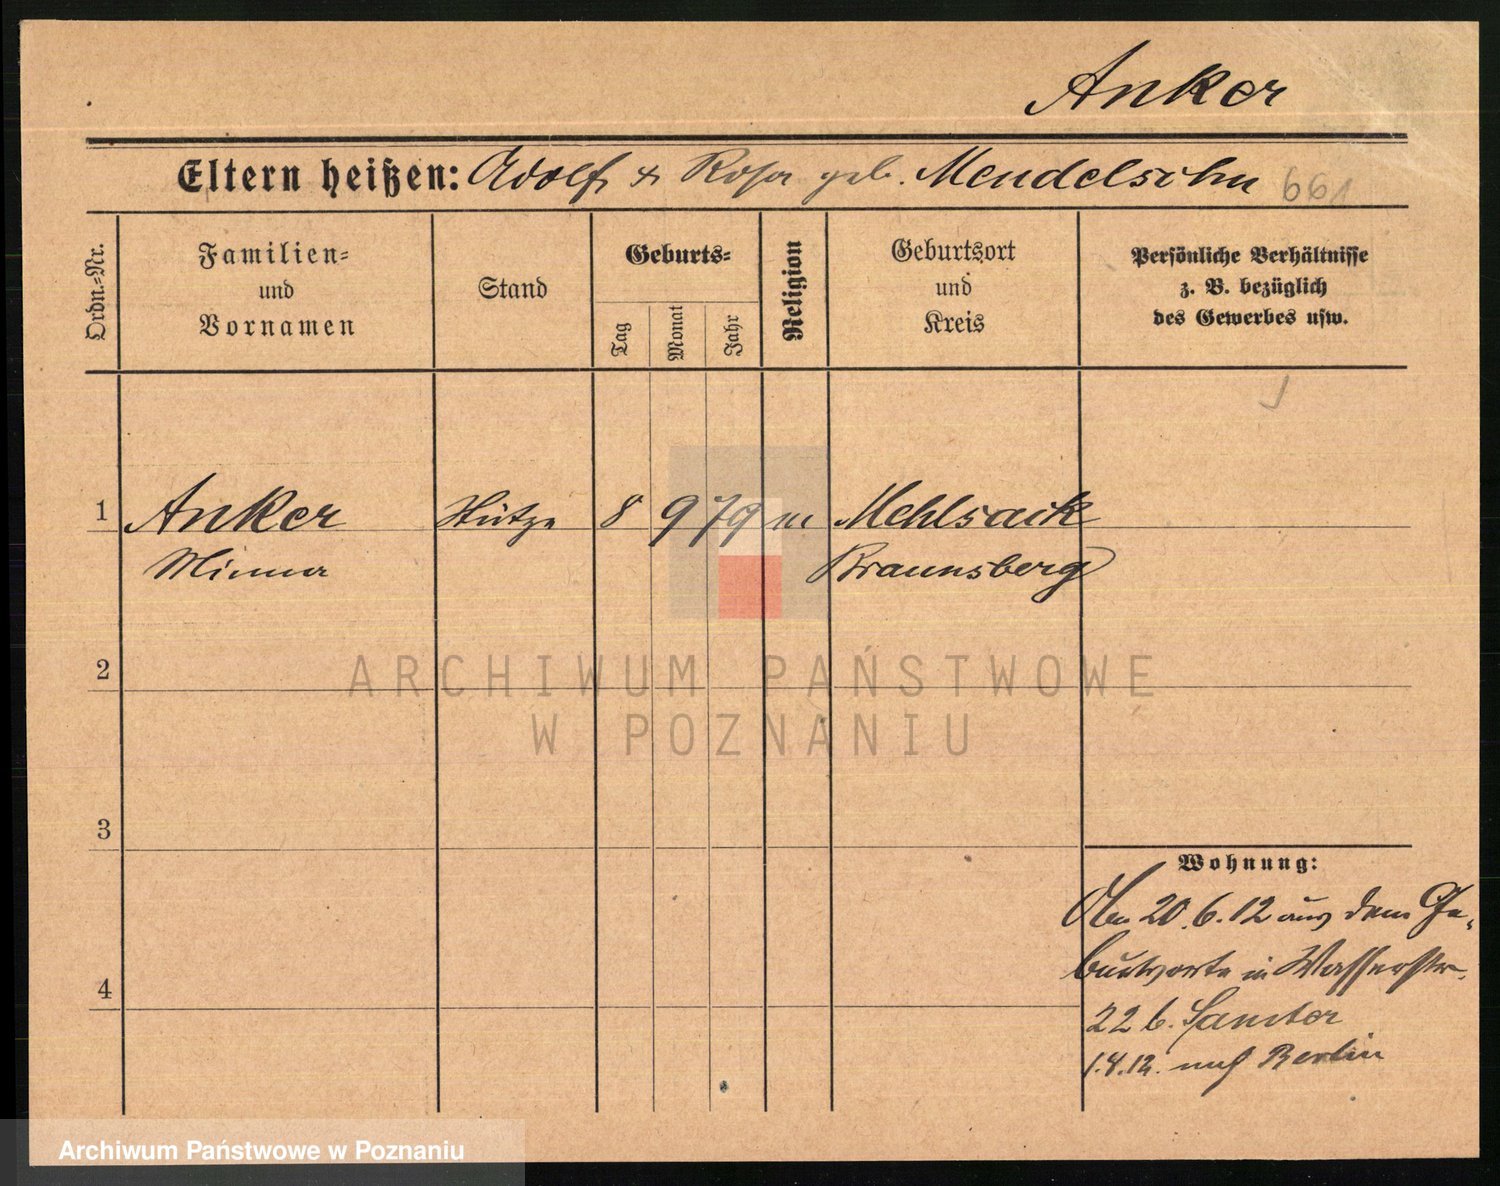 Anker
Eltern heißen: Adolf & Rosa geb. Mendelsohn 661
Ordn.-Nr.
Familien-
und
Vornamen
Stand
Geburts-
Tag
Monat
Jahr
Religion
Geburtsort
und
Kreis
Persönliche Verhältnisse
z. B. bezüglich
des Gewerbes usw.
1 Anker Stütze 8 9 79 m Mehlsack
Minna Braunsberg
2
3
4
Wohnung:
Am 20.6.12 aus dem Ge-
burtsorte in Wasserstr.
22 b. Samter
12. nach Berlin
ARCHIWUM PAŃSTWOWE
W POZNANIU
Archiwum Państwowe w Poznaniu